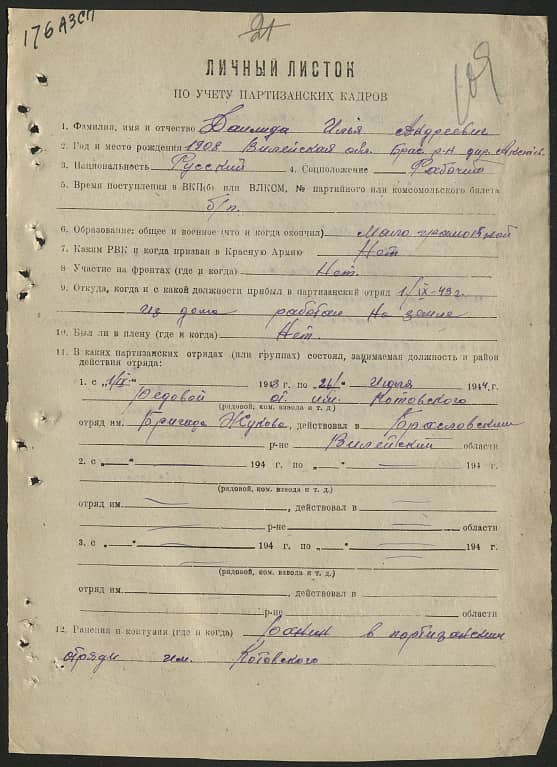 176 АЗСП
21
109
ЛИЧНЫЙ ЛИСТОК
ПО УЧЕТУ ПАРТИЗАНСКИХ КАДРОВ
1. Фамилия, имя и отчество Даилида Илья Андреевич
2. Год и место рождения 1908 Вилейская обл. Брас. р-н дер.
3. Национальность Русский 4. Соцположение Рабочий
5. Время поступления в ВКП(б) или ВЛКСМ, № партийного или комсомольского билета
б/п.
6. Образование: общее и военное (что и когда окончил) Мало грамотной
7. Каким РВК и когда призван в Красную Армию Нет
8 Участие на фронтах (где и когда) Нет.
9. Откуда, когда и с какой должности прибыл в партизанский отряд 1/IX-43 г.
из дома работал на земле
10. Был ли в плену (где и когда) Нет.
11. В каких партизанских отрядах (или группах) состоял, занимаемая должность и район
действия отряда:
1. с „1/IX“ 1943 г. по „26/“ Июля 1944 г.
Редовой от. им. Котовского
(рядовой, ком. взвода и т. д.)
отряд им. Бригада Жукова, действовал в Браславский
р-не Вилейский области
2. с „ “ 194 г. по „ “ 194 г.
(рядовой, ком. взвода и т. д.)
отряд им. , действовал в
р-не области
3. с „ “ 194 г. по „ “ 194 г.
(рядовой, ком. взвода и т. д.)
отряд им. , действовал в
р-не области
12. Ранения и контузии (где и когда) в партизанским
отряди им. Котовского